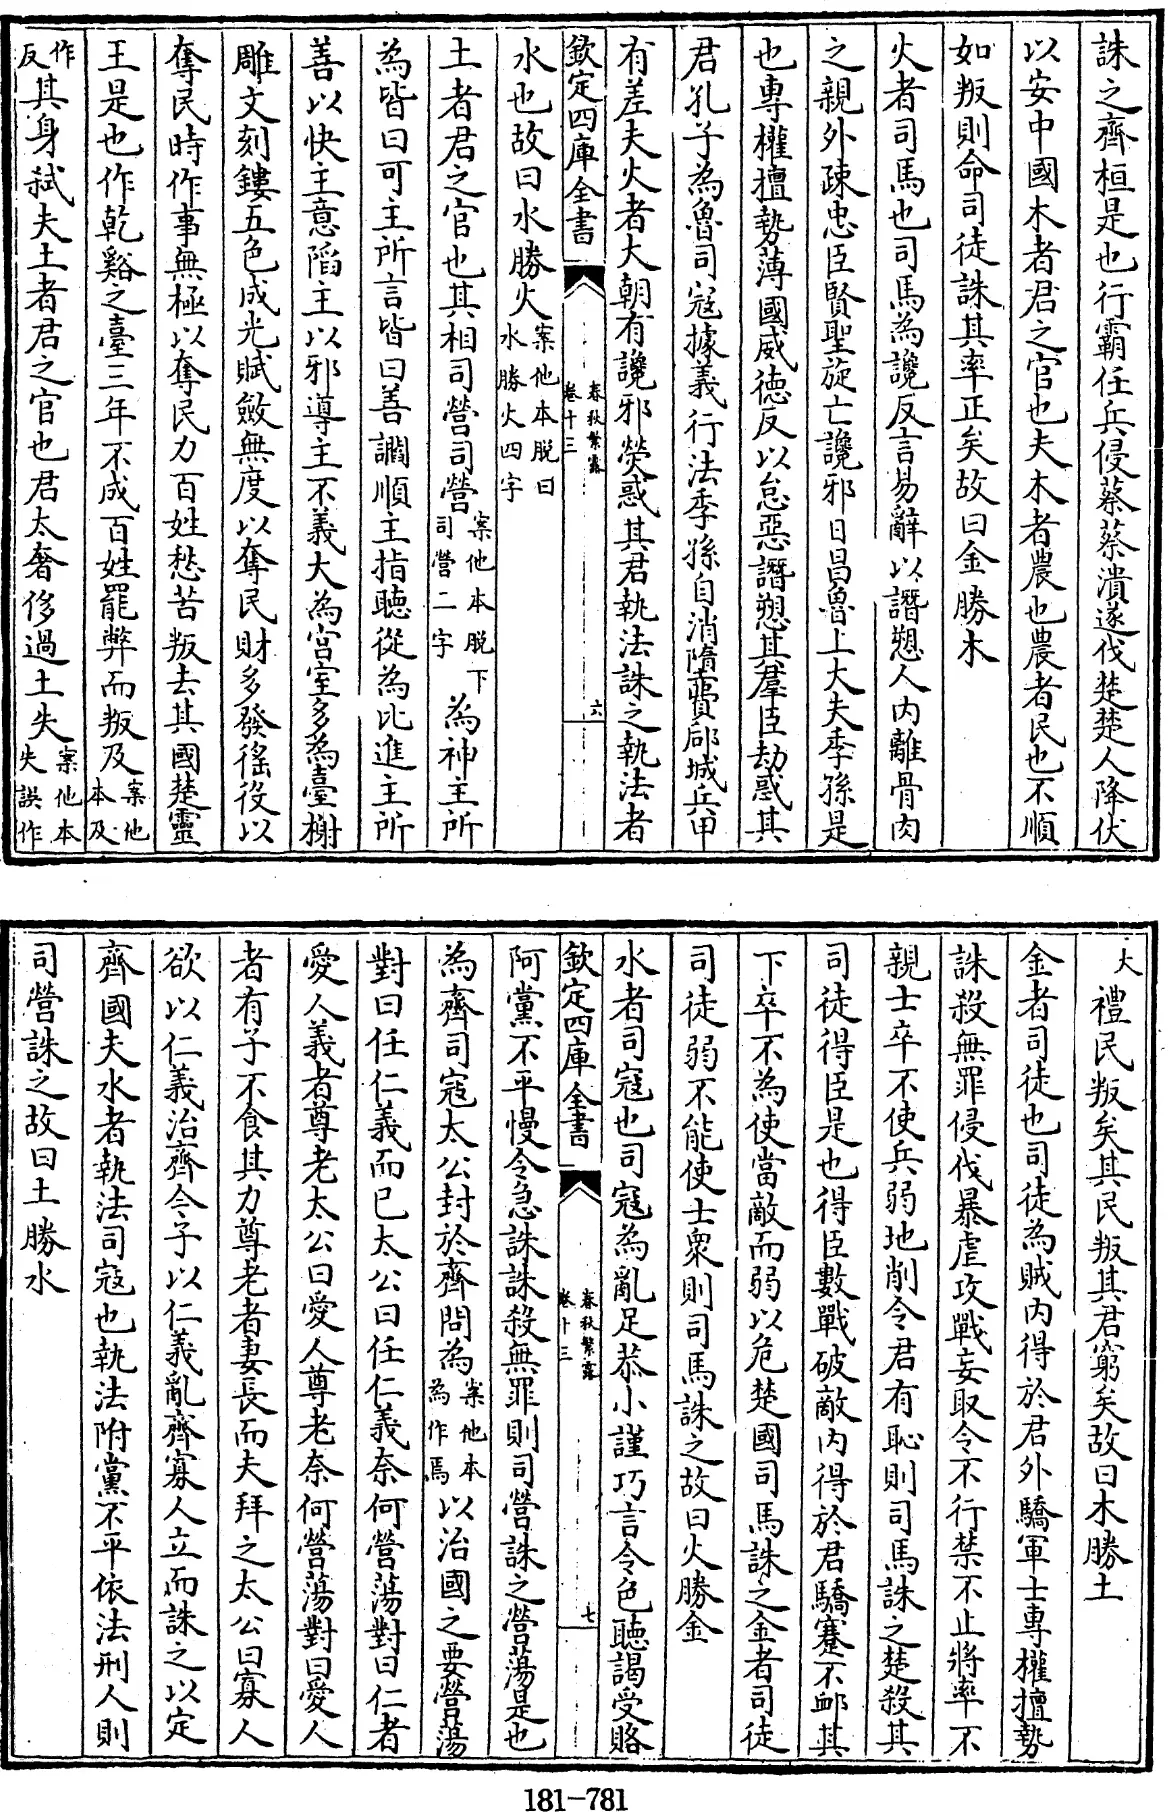 誅之齊桓是也行霸任兵侵蔡蔡潰遂伐楚楚人降伏
以安中國木者君之官也夫木者農也農者民也不順
如叛則命司徒誅其率正矣故曰金勝木
火者司馬也司馬為讒反言易辭以譖愬人內離骨肉
之親外疎忠臣賢聖旋亡讒邪日昌魯上大夫季孫是
也專權擅勢薄國威徳反以怠惡譖愬其羣臣劫惑其
君孔子為魯司寇據義行法季孫自消隳費郈城兵甲
有差夫火者大朝有讒邪熒惑其君執法誅之執法者
欽定四庫全書
春秋繁露
卷十三
六
水也故曰水勝火案他本脫曰水勝火四字
土者君之官也其相司營司營案他本脫下司營二字為神主所
為皆曰可主所言皆曰善讇順主指聽從為比進主所
善以快主意䧟主以邪導主不義大為宮室多為臺榭
雕文刻鏤五色成光賦斂無度以奪民財多發徭役以
奪民時作事無極以奪民力百姓愁苦叛去其國楚靈
王是也作乾谿之臺三年不成百姓罷弊而叛及案他本及
作反其身弒夫土者君之官也君太奢侈過土失案他本失誤作
大禮民叛矣其民叛其君窮矣故曰木勝土
金者司徒也司徒為賊內得於君外驕軍士專權擅勢
誅殺無罪侵伐暴虐攻戰妄取令不行禁不止將率不
親士卒不使兵弱地削令君有恥則司馬誅之楚殺其
司徒得臣是也得臣數戰破敵內得於君驕蹇不衈其
下卒不為使當敵而弱以危楚國司馬誅之金者司徒
司徒弱不能使士衆則司馬誅之故曰火勝金
水者司寇也司寇為亂足恭小謹巧言令色聽謁受賂
欽定四庫全書
春秋繁露
卷十三
七
阿黨不平慢令急誅誅殺無罪則司營誅之營蕩是也
為齊司寇太公封於齊問為案他本為作焉以治國之要營蕩
對曰任仁義而已太公曰任仁義奈何營蕩對曰仁者
愛人義者尊老太公曰愛人尊老奈何營蕩對曰愛人
者有子不食其力尊老者妻長而夫拜之太公曰寡人
欲以仁義治齊今子以仁義亂齊寡人立而誅之以定
齊國夫水者執法司寇也執法附黨不平依法刑人則
司營誅之故曰土勝水
181-781